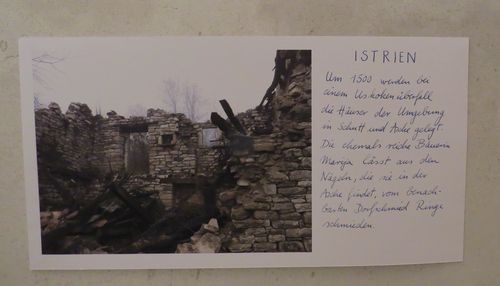 ISTRIEN
Um 1500 werden bei
einem Uskokenüberfall
die Häuser der Umgebung
in Schutt und Asche gelegt.
Die ehemals reiche Bäuerin
Marija lässt aus den
Nägeln, die sie in der
Asche findet, vom benach-
barten Dorfschmied Ringe
schmieden.